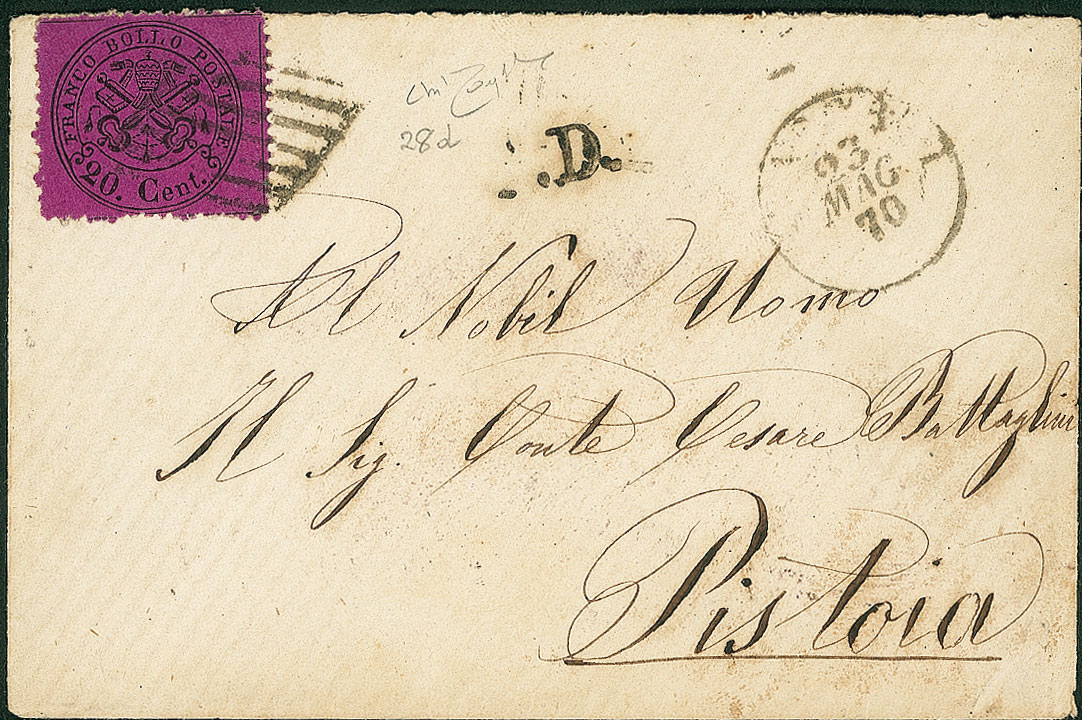 FRANCO BOLLO POSTALE
20. Cent.
28d
.D.
23
MAG
70
Al Nobil Uomo
Il Sig. Conte Cesare Battaglini
Pistoia